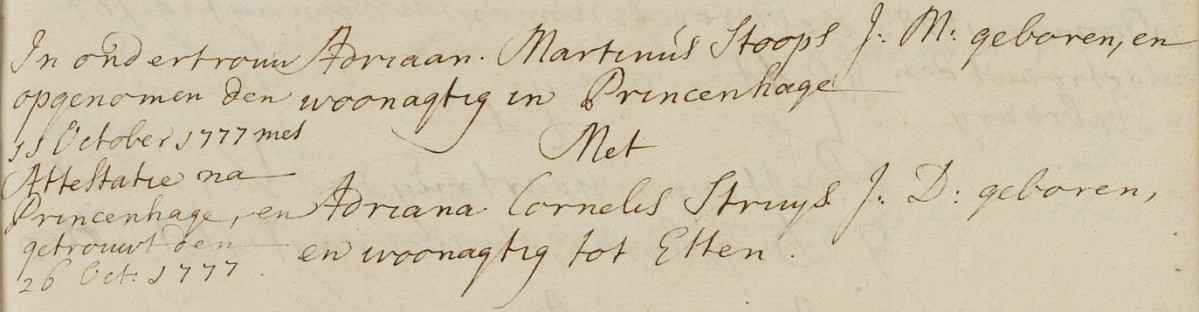 In ondertrouw
opgenomen den
11 October 1777 met
Attestatie na
Princenhage, en
getrouwt den
26 Oct: 1777.
Adriaan. Martinus Stoops J: M: geboren, en
woonagtig in Princenhage
Met
Adriana Cornelis Struys J: D: geboren,
en woonagtig tot Etten.